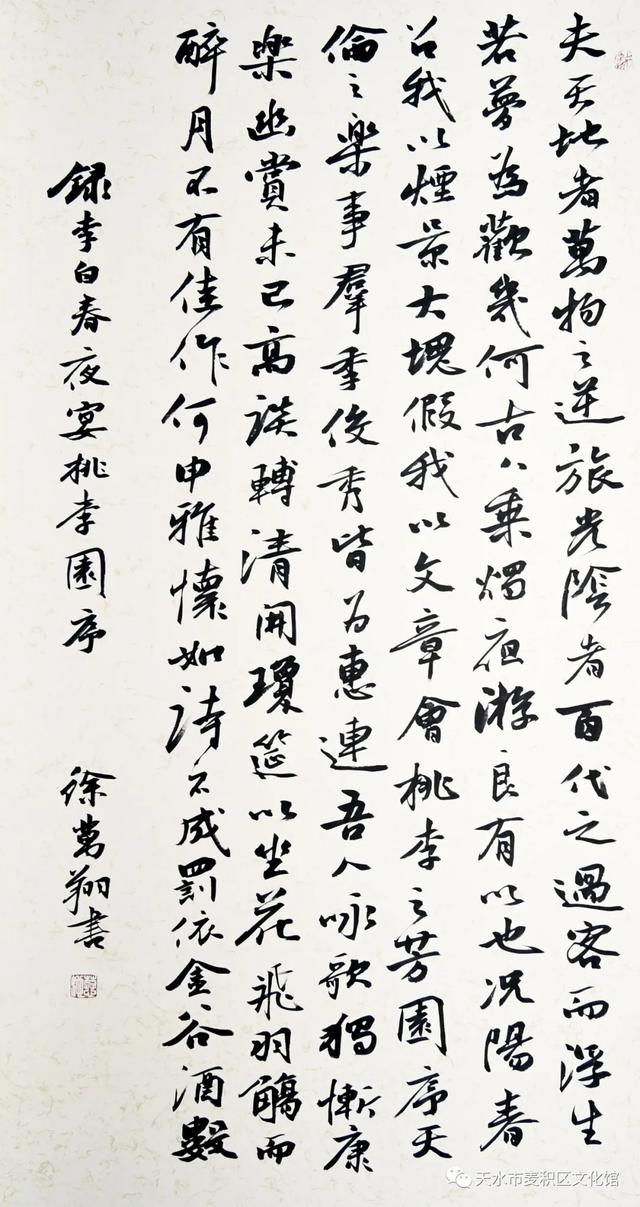 夫天地者萬物之逆旅光陰者百代之過客而浮生
若夢為歡幾何古人秉燭夜游良有以也况陽春
召我以煙景大塊假我以文章會桃李之芳園序天
倫之樂事羣季俊秀皆为惠連吾人咏歌獨慚康
樂幽賞未已高談轉清開瓊筵以坐花飛羽觴而
醉月不有佳作何申雅懷如詩不成罰依金谷酒數
録李白春夜宴桃李園序 徐萬翔書
天水市麦积区文化馆